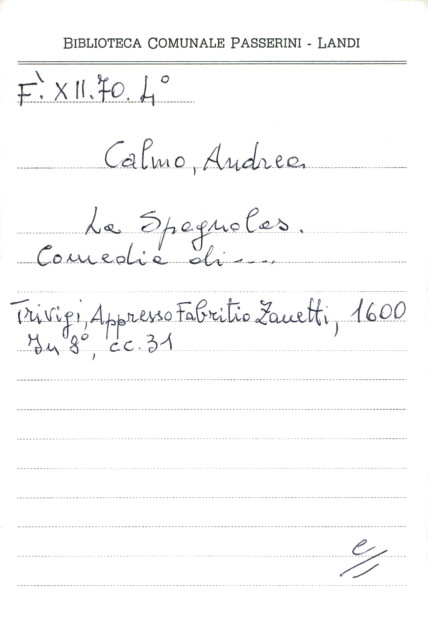 BIBLIOTECA COMUNALE PASSERINI - LANDI
F̀. XII.70. 4°
Calmo, Andrea
La Spagnolas.
Comedia di----
Trivigi, Appresso Fabritio Zanetti, 1600
In 8°, cc. 31
e